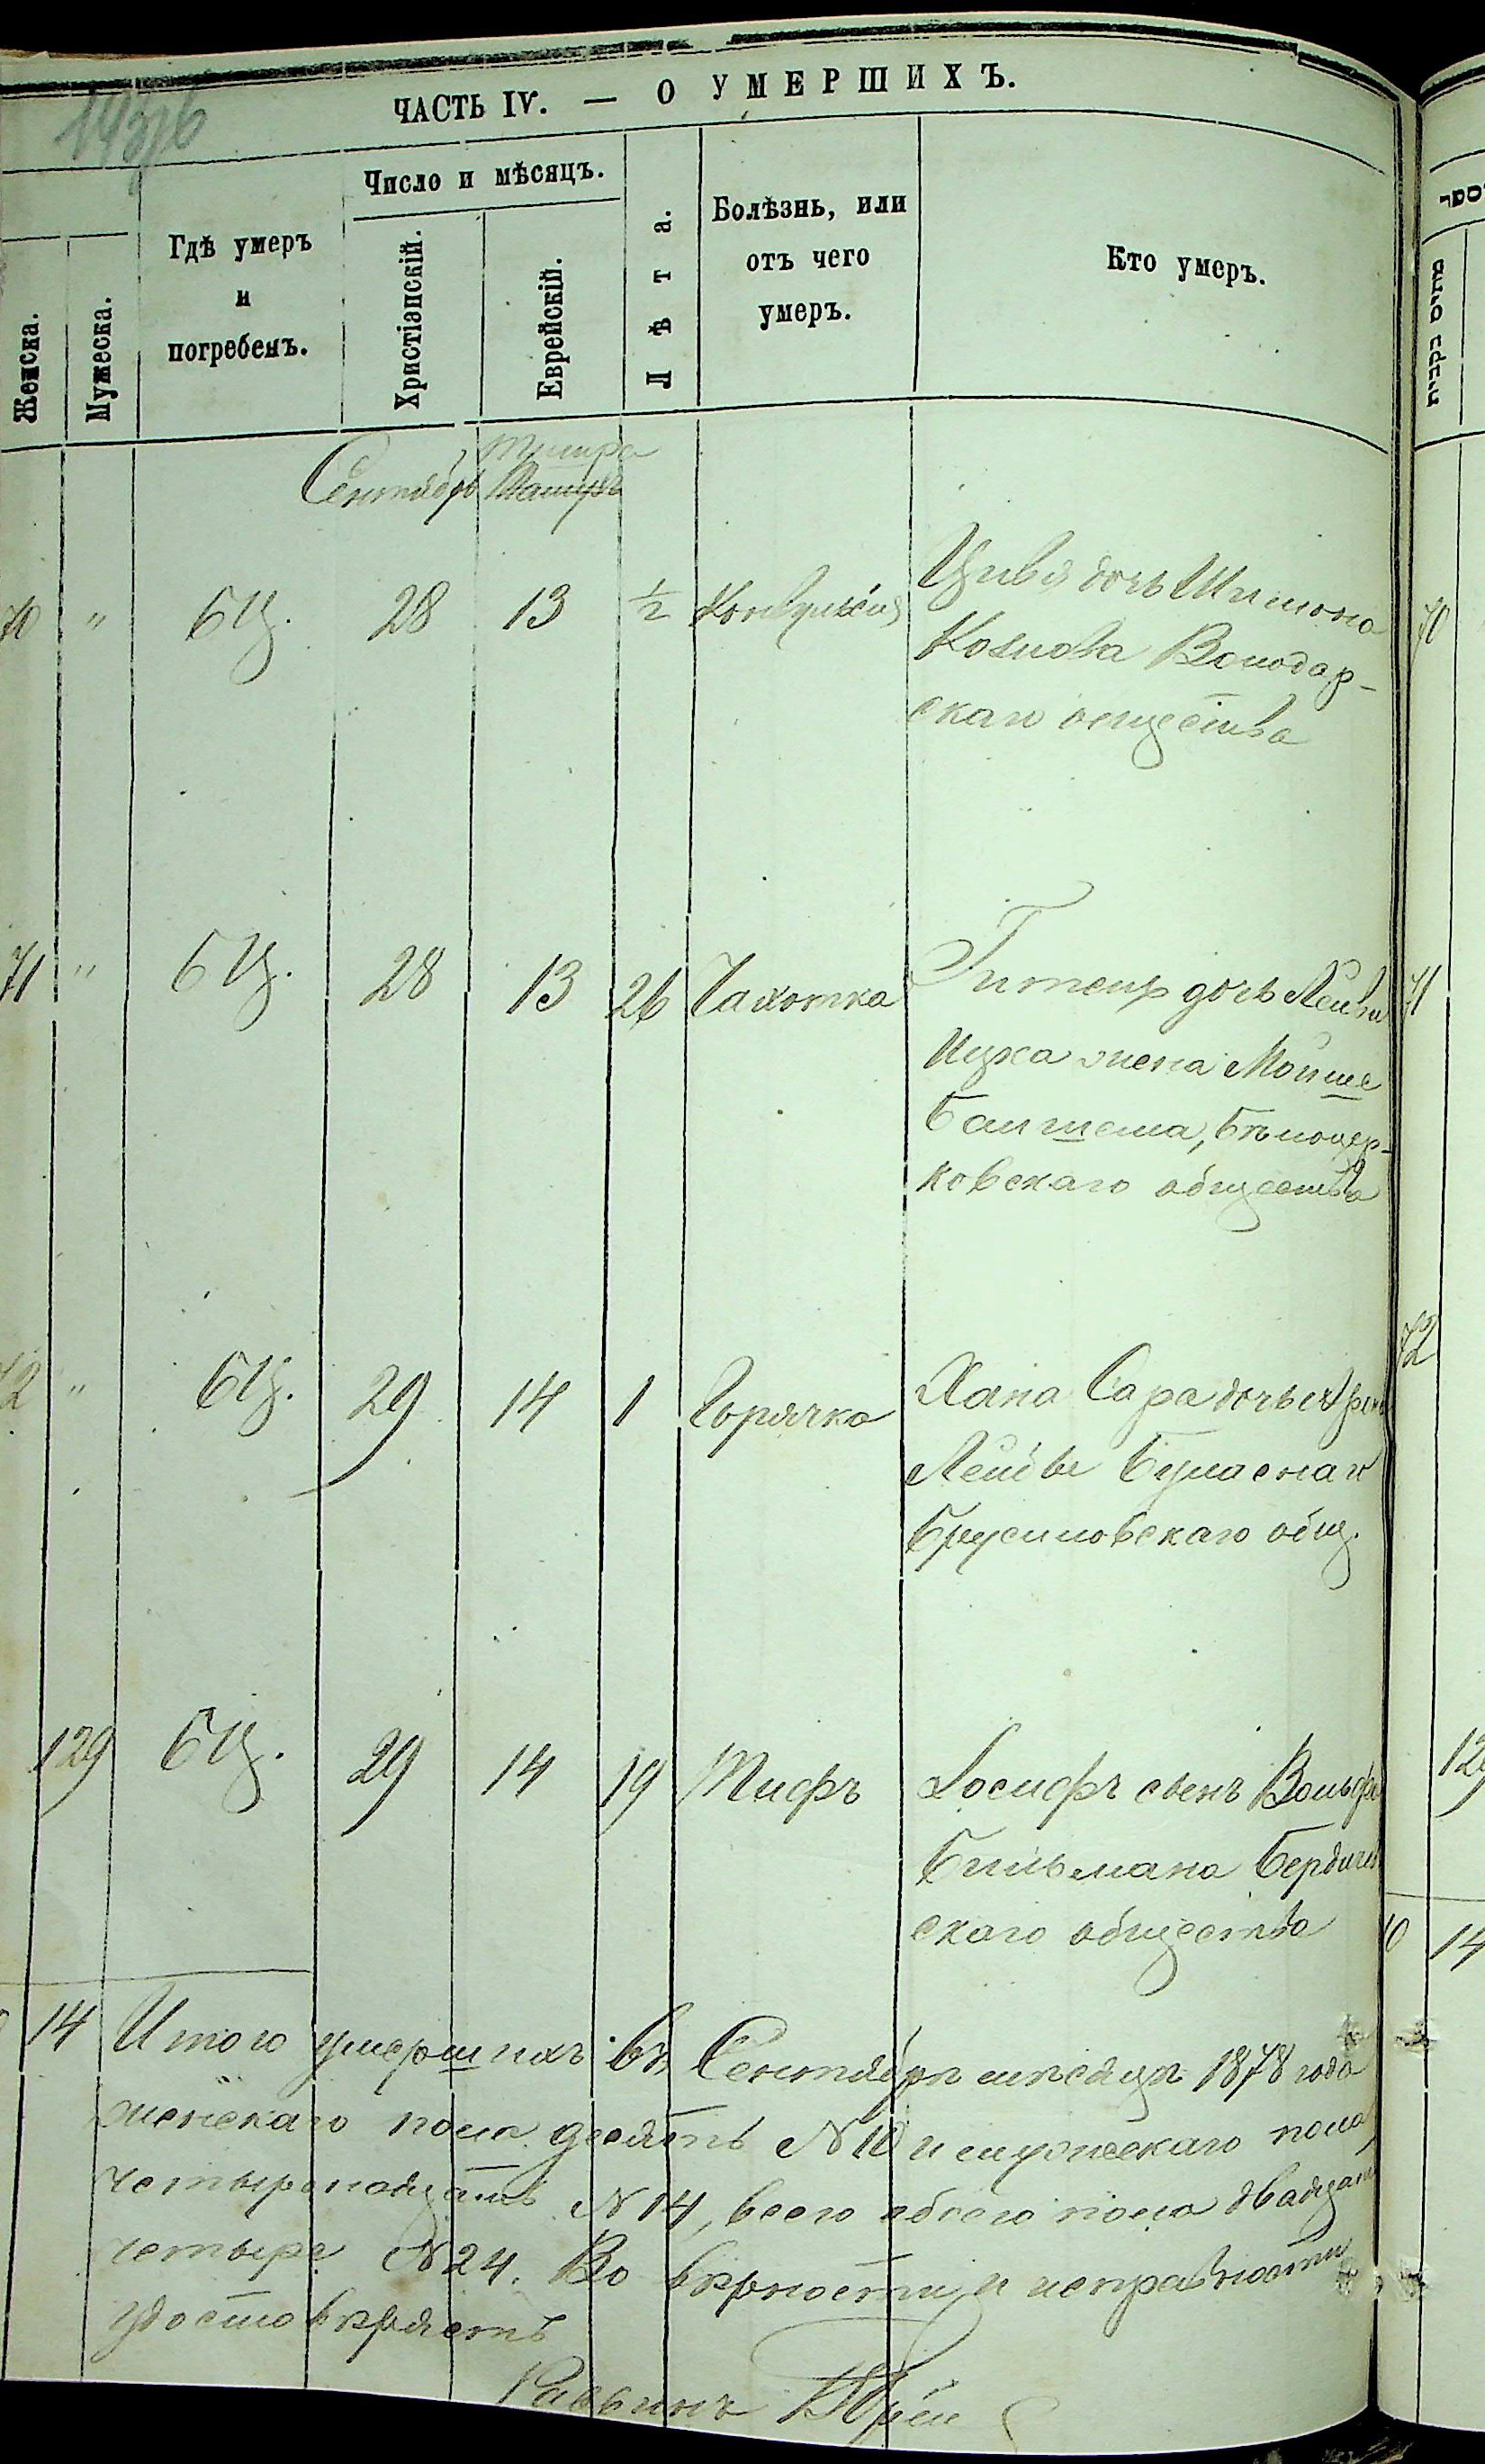 ЧАСТЬ IV. — О УМЕРШИХЪ.
Женска.
Мужеска.
Гдѣ умеръ
и
погребенъ.
Число и мѣсяцъ.
Христіанскій.
Еврейскій.
Лѣта.
Болѣзнь, или
отъ чего
умеръ.
Кто умеръ.
Сентябрь Тишра
70 " БЦ. 28 13 1/2 Конвульсія Цивя дочь Шимона
Козлова Володар-
скаго общества
71 " БЦ. 28 13 26 Чахотка дочь Лейбы
Ицка жена Мойше
Бѣлоцер-
ковскаго общества
72 " БЦ. 29 14 1 Горячка Хана Сара дочь
Лейбы
Брусиловскаго общ.
129 БЦ. 29 14 19 Тифъ Іосифъ сынъ Вольфа
Бердичев
скаго общества
14 Итого умершихъ въ Сентябрѣ мѣсяцѣ 1878 года
женскаго пола десять №10 и мужескаго пола
четырнадцать №14, всего обоего пола двадцать
четыре №24. Во вѣрности и исправности
удостовѣряетъ
Раввинъ
70
71
72
129
10 14